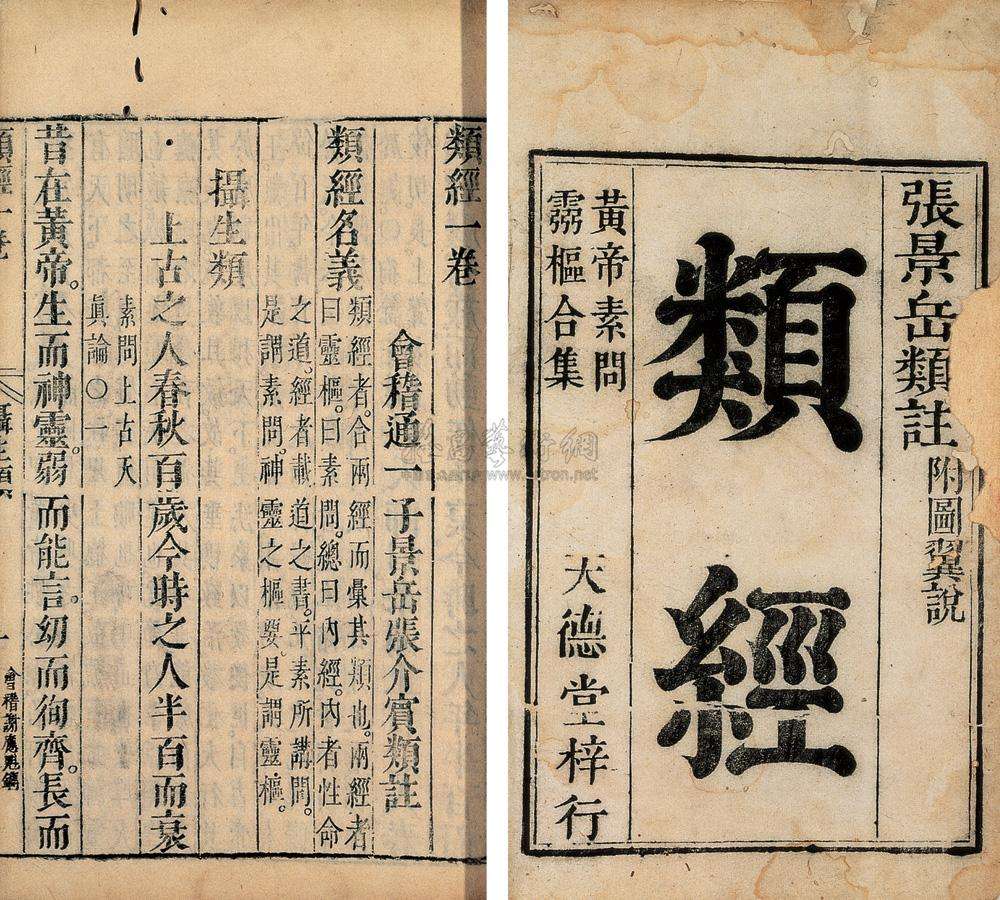 張景岳類註 附圖翼說
類經
黃帝素問
霛樞合集
天德堂梓行
類經一卷
會稽通一子景岳張介賓類註
類經名義
類經者。合兩經而彙其類也。兩經者
曰靈樞。曰素問。總曰內經。內者性命
之道。經者載道之書。平素所講問。
是謂素問。神靈之樞要。是謂靈樞。
攝生類
上古之人春秋百歲今時之人半百而衰
素問上古天
眞論〇一
昔在黃帝。生而神靈。弱而能言。幼而徇齊。長而
類經一卷
攝生類
一
會稽謝應魁鐫